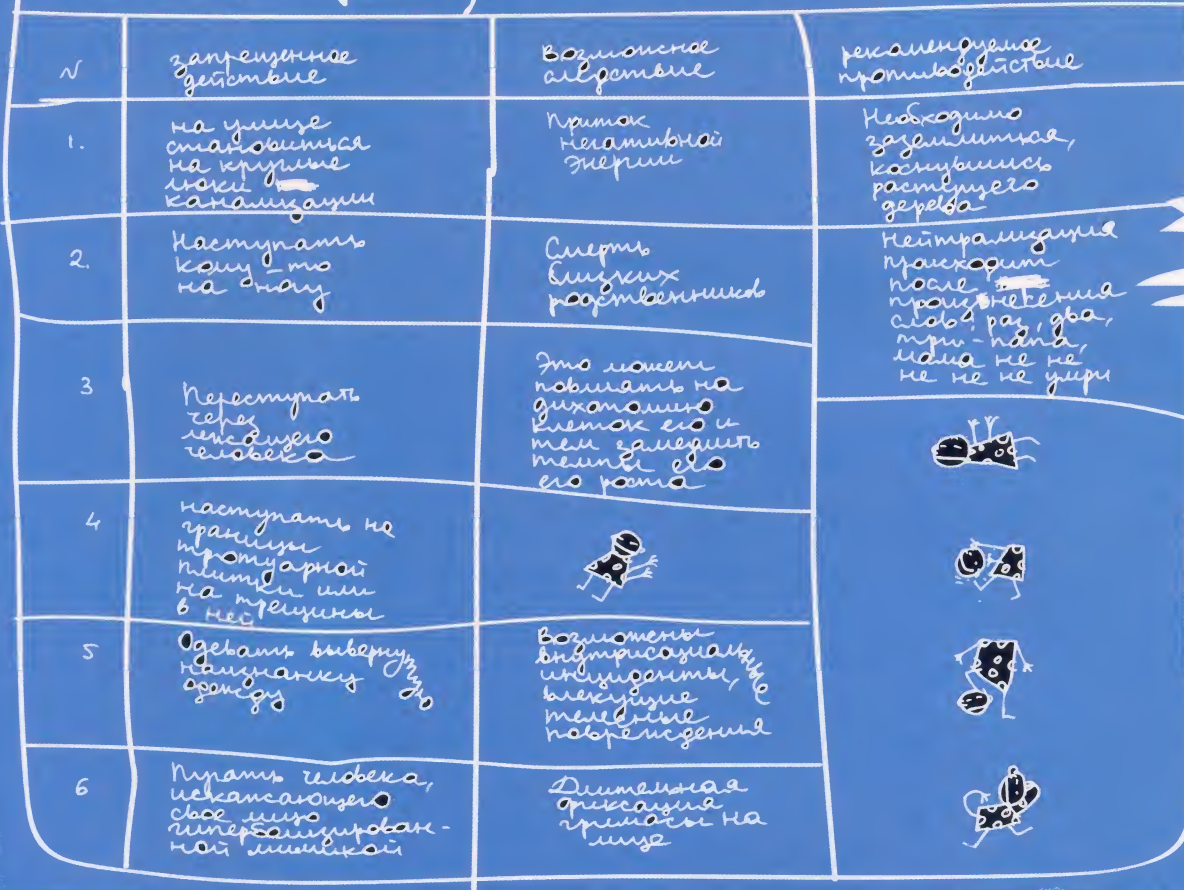 N
запрещенное
действие
Возможное
следствие
рекомендуемое
противодействие
1.
на улице
становиться
на круглые
люки
канализации
Приток
негативной
энергии
Необходимо
заземлиться,
коснувшись
растущего
дерева
2.
Наступать
кому-то
на ногу
Смерть
близких
родственников
Нейтрализация
происходит
после
произнесения
слов: раз, два,
три-папа,
мама не не
не не не умри
3
Переступать
через
лежащего
человека
Это может
повлиять на
дихотомию
клеток его и
тем замедлить
темпы его
его роста
4
наступать на
границы
тротуарной
плитки или
на трещины
в ней
5
Одевать вывернутую
наизнанку
одежду
Возможны
внутрисоциальные
инциденты,
влекущие
телесные
повреждения
6
Пугать человека,
искажающего
свое лицо
гиперболизирован-
ной мимикой
Длительная
фиксация
гримасы на
лице